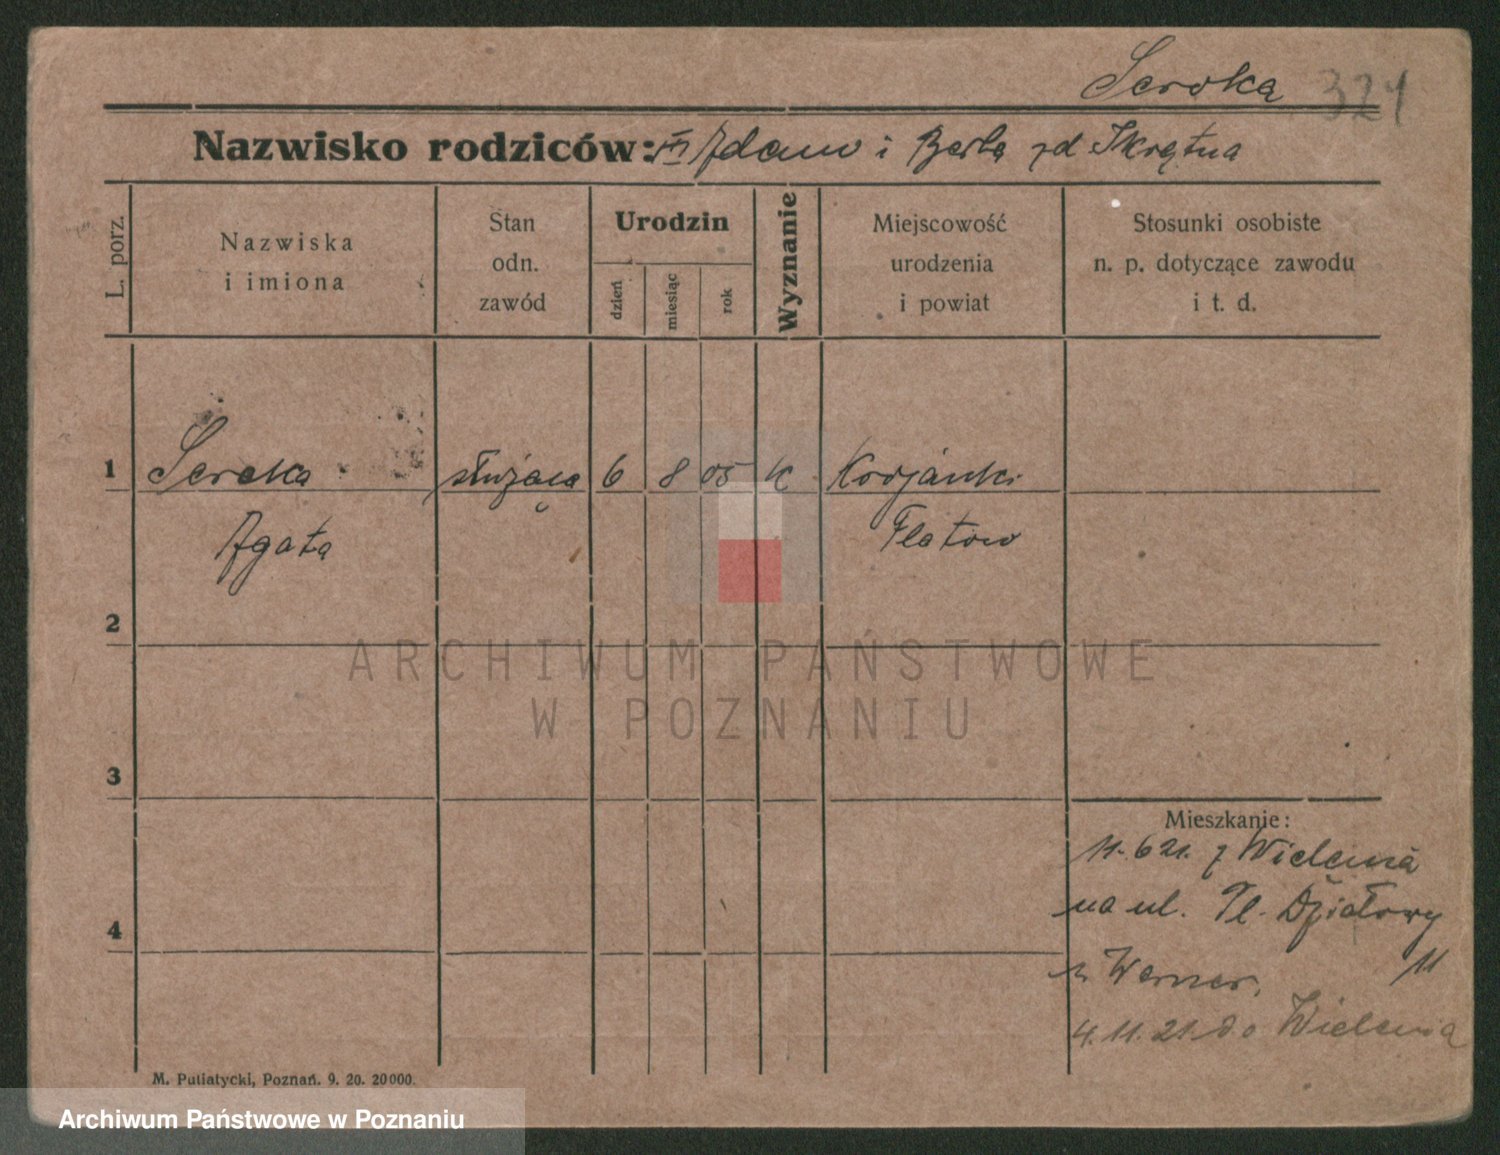 Seroka 321
Nazwisko rodziców: Adam i Berta zd Skrętna
L. porz.
Nazwiska
i imiona
Stan
odn.
zawód
Urodzin
dzień
miesiąc
rok
Wyznanie
Miejscowość
urodzenia
i powiat
Stosunki osobiste
n. p. dotyczące zawodu
i t. d.
1 Seroka służąca 6 8 05 K
Agata Flatow
2
ARCHIWUM PAŃSTWOWE
W POZNANIU
3
Mieszkanie:
11.6 21. z Wielenia
na ul. Pl. Działowy
4
Werner, 11
4.11.21. do Wielenia
M. Putiatycki, Poznań. 9. 20. 20000.
Archiwum Państwowe w Poznaniu